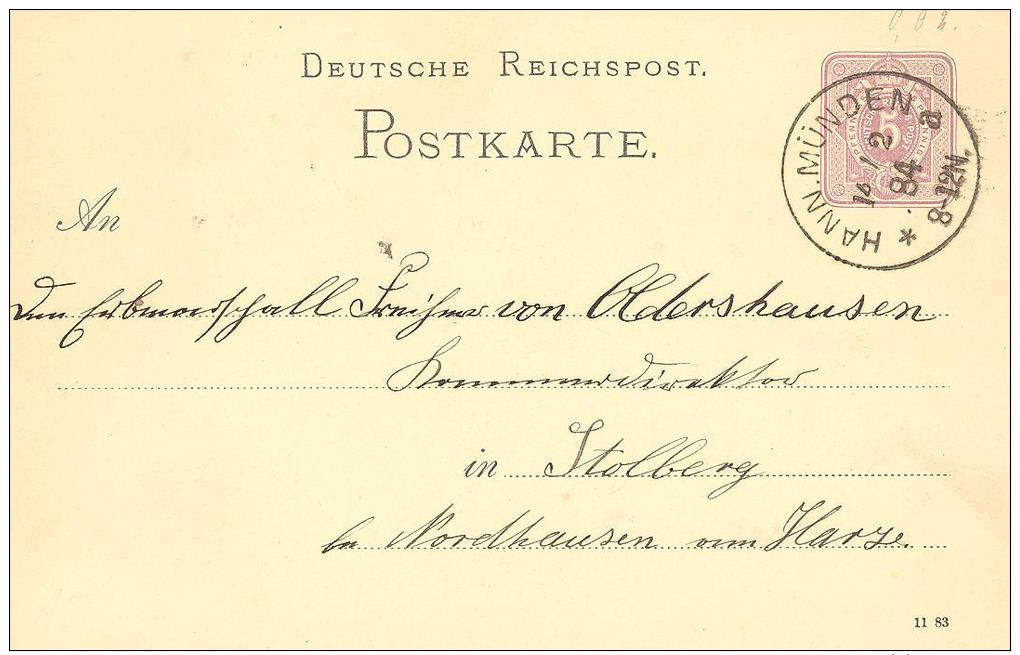 DEUTSCHE REICHSPOST.
POSTKARTE.
5
PFENNIG
HANN. MÜNDEN
14 / 2
84
a
8-12N.
*
An
den Erbmarschall Freiherr von Oldershausen
Kammerdirektor
in Stolberg
bei Nordhausen am Harze.
11 83